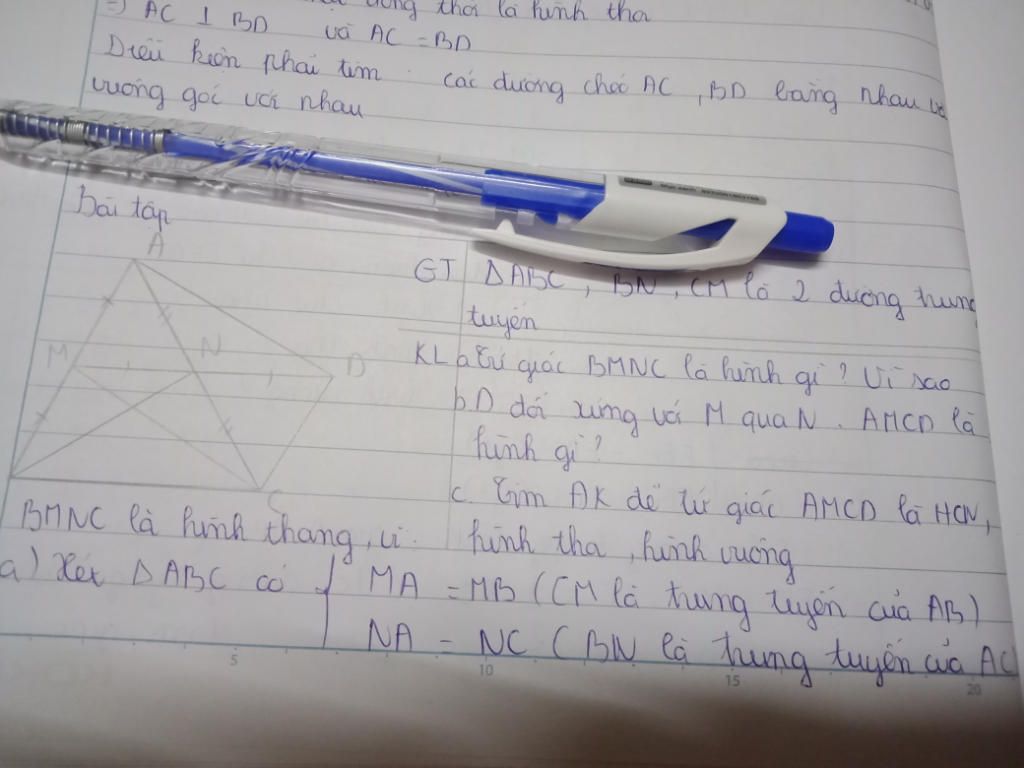 là hình thoi
=) AC ⊥ BD và AC = BD
Điều kiện phải tìm các đường chéo AC, BD bằng nhau và
vuông góc với nhau
Bài tập
A
M
N
D
C
GT ΔABC, BN, CM là 2 đường trung
tuyến
KL a. Tứ giác BMNC là hình gì? Vì sao
b. D đối xứng với M qua N. AMCD là
hình gì?
c. Tìm ĐK để tứ giác AMCD là HCN,
hình thoi, hình vuông
BMNC là hình thang, vì
a) Xét ΔABC có { MA = MB (CM là trung tuyến của AB)
NA = NC (BN là trung tuyến của AC
5 10 15 20